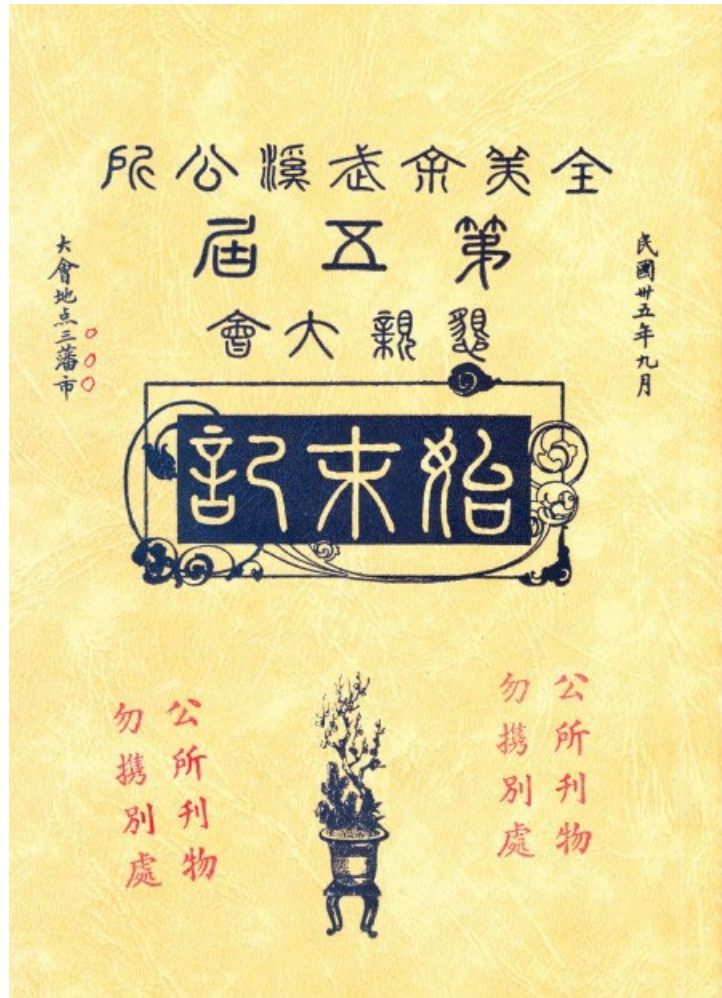 全美余武溪公所
第五屆
懇親大會
民國卅五年九月
大會地点三藩市
始末記
公所刊物
勿携別處
公所刊物
勿携別處